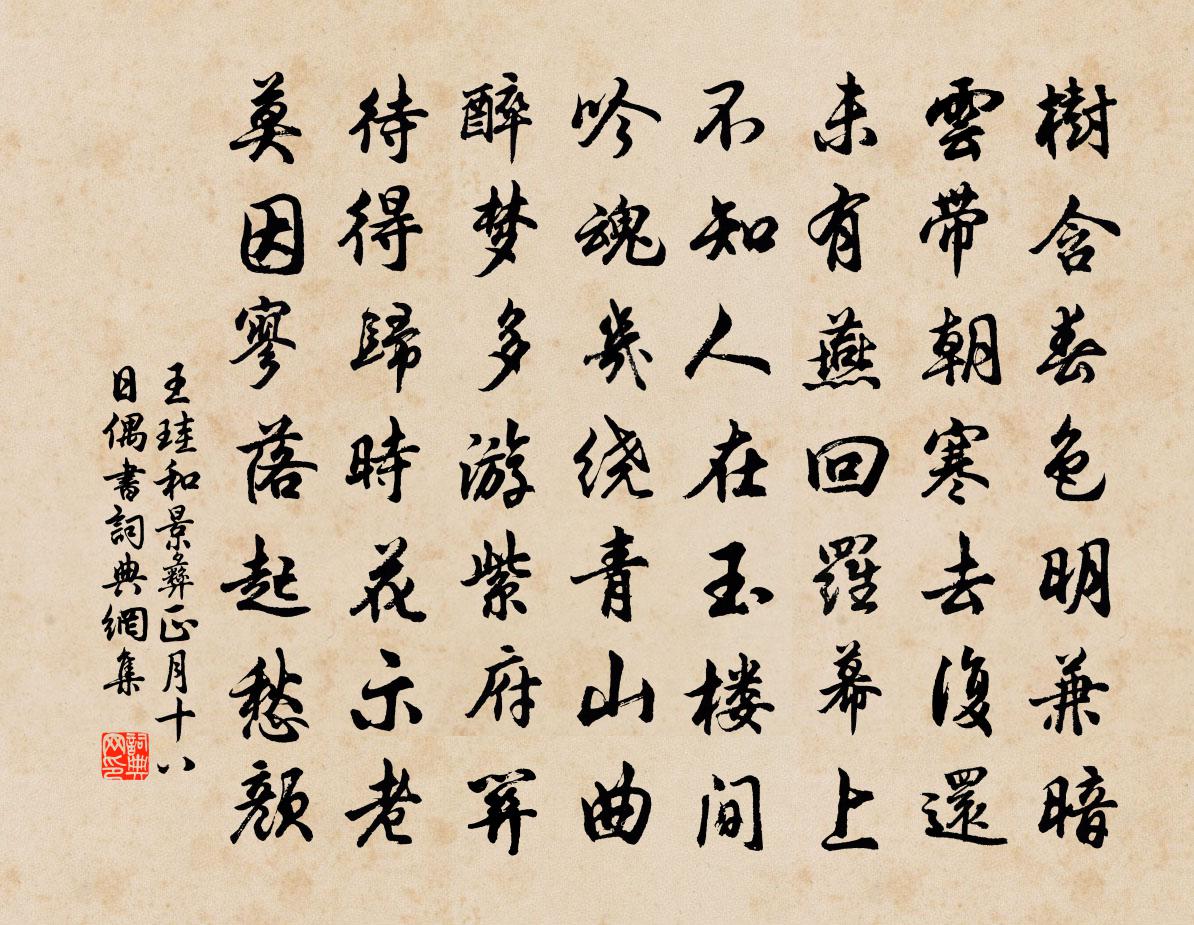 樹含春色明兼暗
雲帶朝寒去復還
未有燕回羅幕上
不知人在玉楼間
吟魂幾绕青山曲
醉梦多游紫府
待得歸時花示老
莫因寥落起愁顏
王珪和景彝正月十八
日偶書詞典網集
詞典网印